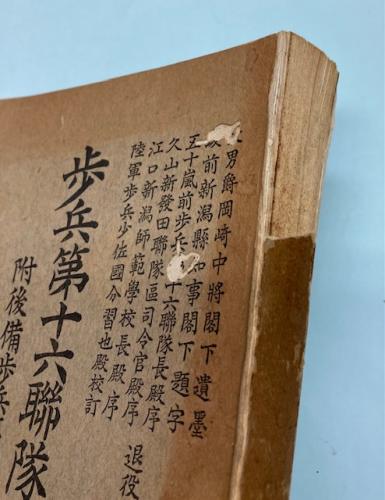 男爵岡崎中將閣下遺墨
前新潟縣知事閣下題字
五十嵐前步兵十六聯隊長殿序
久山新發田聯隊區司令官殿序
江口新潟師範學校長殿序 退役
陸軍步兵少佐國分習也殿校訂
步兵第十六聯隊
附後備步兵